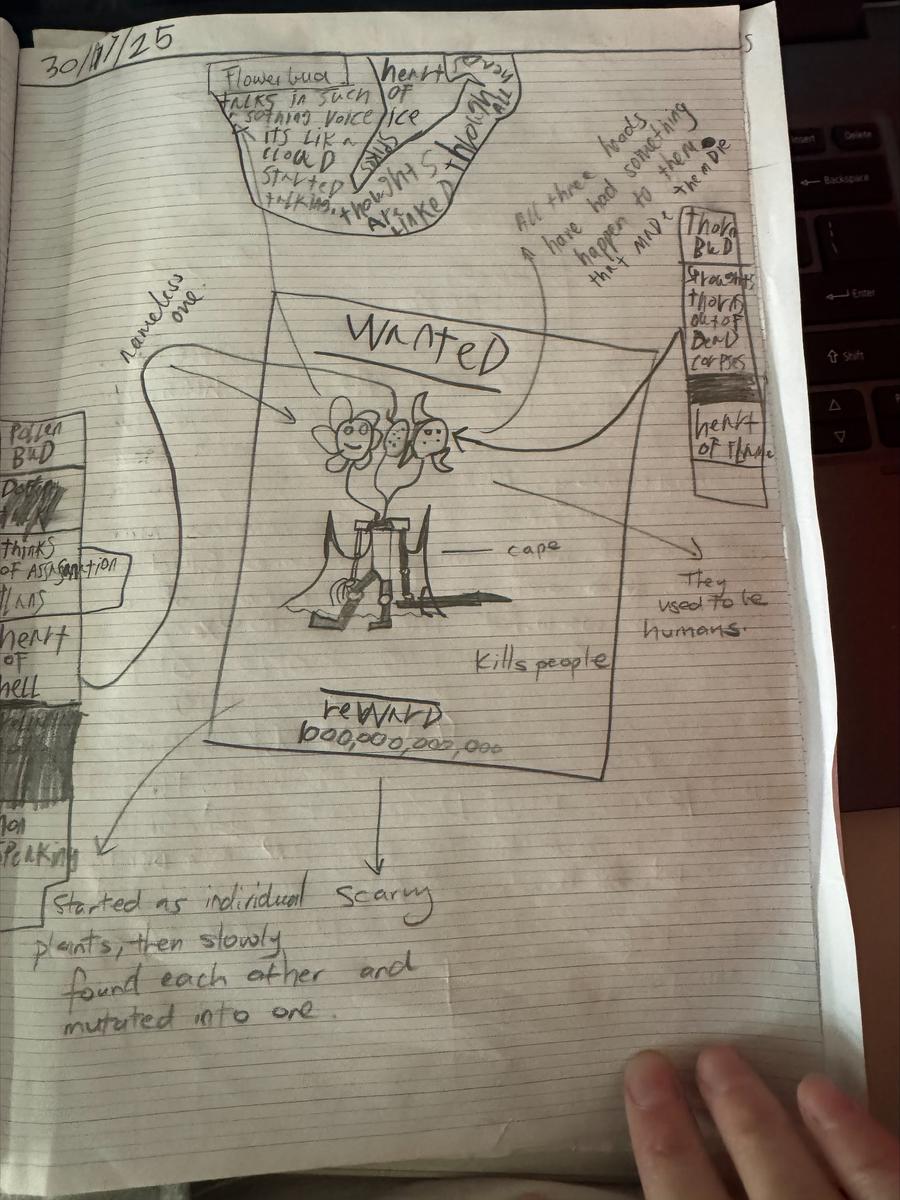 30/11/25
Flowerbud
talks in such
sothing voice
its like a
cloud
started
talking.
heart
of
ice
spiks
thoughts
are
linked
though
all
heads
All three heads
have had something
happen to them
that made them die
nameless
one.
Thorn
BuD
thorns
out of
DeaD
corpses
heart
of flame
WanteD
Pollen
BuD
thinks
of Assasination
plans
heart
of
hell
non
speaking
cape
They
used to be
humans.
Kills people
reWarD
1000,000,000,000
Scarvy
Started as individual
plants, then slowly
found each other and
mutated into one.
Insert
Delete
Backspace
Enter
Shift